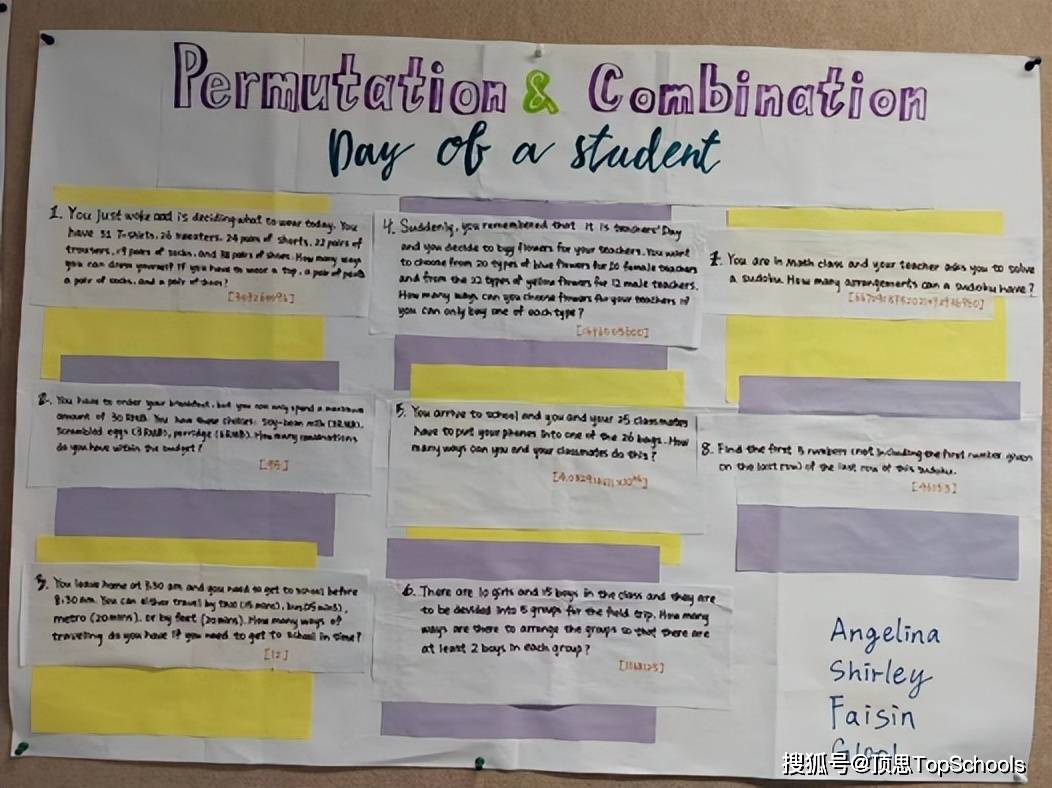 Permutation & Combination
Day of a student
1. You just woke and is deciding what to wear today. You
have 31 T-shirts, 26 sweaters, 24 pairs of shorts, 22 pairs of
trousers, 19 pairs of socks, and pairs of shoes. How many ways
you can dress yourself if you have to wear a top, a pair of
a pair of socks, and a pair of shoes?
2. You have to order your breakfast, but you can only spend a maximum
amount of 30 RMB. You have these choices: Soy-bean milk
Scrambled eggs (3 RMB), porridge (6 RMB). How many combinations
do you have within the budget?
[95]
3. You leave home at 7.30 am and you need to get to school before
8.30 am. You can either travel by taxi (15 mins), bus
metro (20 mins), or by feet (20 mins). How many ways of
traveling do you have if you need to get to school in time?
[12]
4. Suddenly, you remembered that it is teachers' Day
and you decide to buy flowers for your teachers. You want
to choose from 20 types of blue flowers for 20 female teachers
and from the 22 types of yellow flowers for 12 male teachers.
How many ways can you choose flowers for your teachers if
you can only buy one of each type?
5. You arrive to school and you and your 25 classmates
have to put your phones into one of the 26 bags. How
many ways can you and your classmates do this?
6. There are 10 girls and 15 boys in the class and they are
to be devided into 5 groups for the field trip. How many
ways are there to arrange the groups so that there are
at least 2 boys in each group?
[1168125]
7. You are in Math class and your teacher asks you to solve
a sudoku. How many arrangements can a sudoku have?
8. Find the first 5 numbers (not including the first number given
on the last row) of the last row of this sudoku.
[46153]
Angelina
Shirley
Faisin
搜狐号@顶思TopSchools